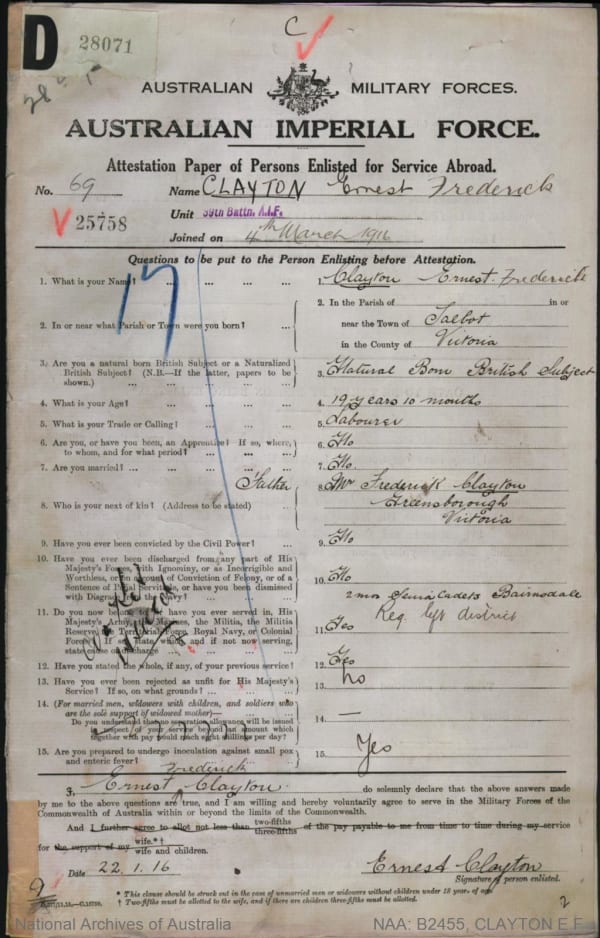 D
28071
C
AUSTRALIAN MILITARY FORCES.
AUSTRALIAN IMPERIAL FORCE.
Attestation Paper of Persons Enlisted for Service Abroad.
No. 69 Name CLAYTON Ernest Frederick
25758 Unit 39th Battn. A.I.F.
Joined on 4th March 1916
Questions to be put to the Person Enlisting before Attestation.
17
1. What is your Name? ... ... ... 1. Clayton Ernest Frederick
2. In or near what Parish or Town were you born? ... 2. In the Parish of in or
near the Town of Talbot
in the County of Victoria
3. Are you a natural born British Subject or a Naturalized
British Subject? (N.B.—If the latter, papers to be
shown.) 3. Natural Born British Subject
4. What is your Age? ... ... ... 4. 19 years 10 months
5. What is your Trade or Calling? ... ... 5. Labourer
6. Are you, or have you been, an Apprentice? If so, where,
to whom, and for what period? ... ... 6. No
7. Are you married? ... ... ... 7. No.
Father
8. Who is your next of kin? (Address to be stated) ... 8. Mr Frederick Clayton
Greensborough
Victoria
9. Have you ever been convicted by the Civil Power? ... 9. No
10. Have you ever been discharged from any part of His
Majesty's Forces, with Ignominy, or as Incorrigible and
Worthless, or on account of Conviction of Felony, or of a
Sentence of Penal Servitude, or have you been dismissed
with Disgrace from the Navy? ... 10. No
2 mos Senior Cadets Bairnsdale
Reg. left district
11. Do you now belong to, or have you ever served in, His
Majesty's Army, the Marines, the Militia, the Militia
Reserve, the Territorial Force, Royal Navy, or Colonial
Forces? If so, state which, and if not now serving,
state cause of discharge ... 11. Yes
12. Have you stated the whole, if any, of your previous service? 12. Yes
13. Have you ever been rejected as unfit for His Majesty's
Service? If so, on what grounds? ... ... 13. No
14. (For married men, widowers with children, and soldiers who
are the sole support of widowed mother)—
Do you understand that no separation allowance will be issued
in respect of your service beyond an amount which
together with pay would reach eight shillings per day? 14. —
15. Are you prepared to undergo inoculation against small pox
and enteric fever? 15. Yes
Frederick
I, Ernest Clayton do solemnly declare that the above answers made
by me to the above questions are true, and I am willing and hereby voluntarily agree to serve in the Military Forces of the
Commonwealth of Australia within or beyond the limits of the Commonwealth.
And I further agree to allot not less than two-fifths three-fifths of the pay payable to me from time to time during my service
for the support of my wife.*† wife and children.
Date 22.1.16
Ernest Clayton
Signature of person enlisted.
* This clause should be struck out in the case of unmarried men or widowers without children under 18 years of age.
† Two-fifths must be allotted to the wife, and if there are children three-fifths must be allotted.
9
2
National Archives of Australia
NAA: B2455, CLAYTON E F